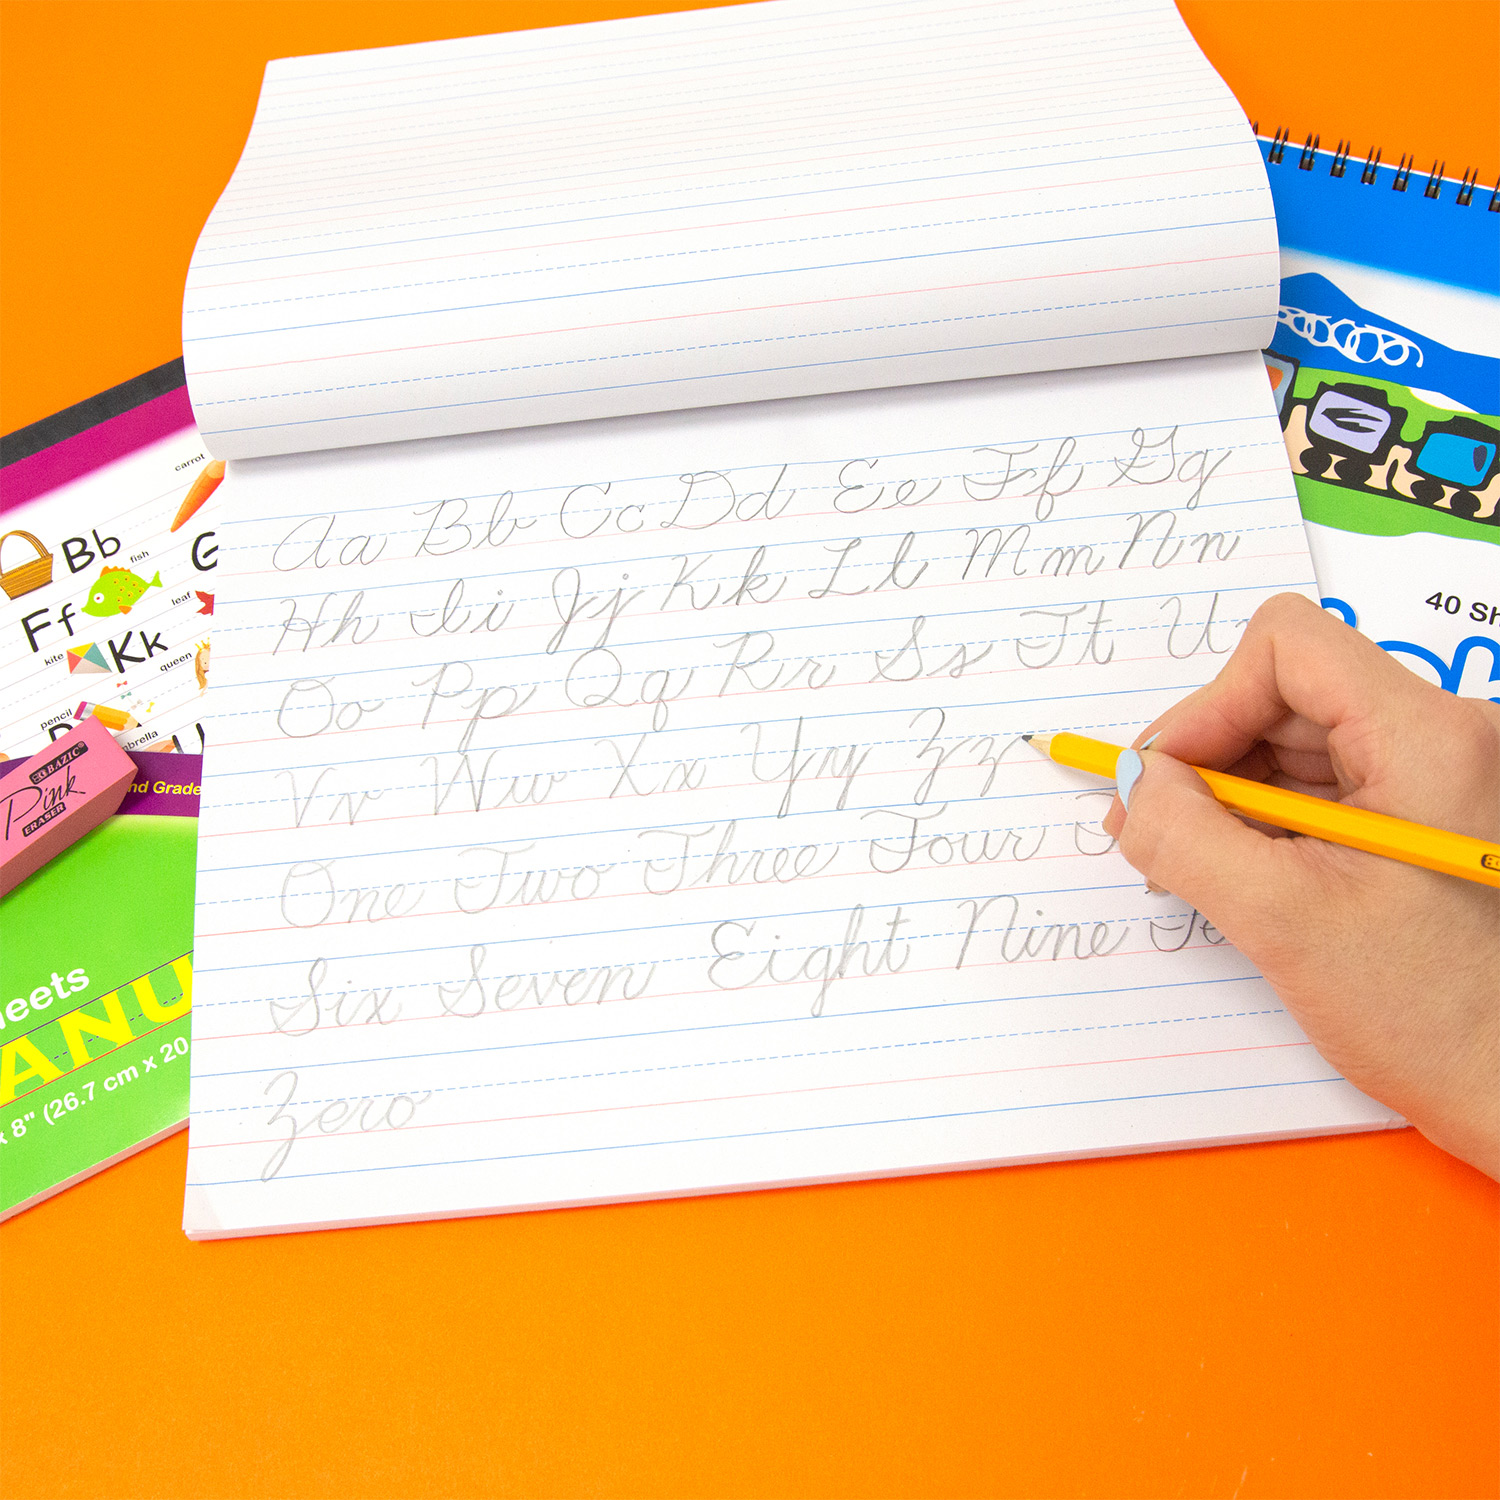 Aa Bb Cc Dd Ee Ff Gg
Hh Ii Jj Kk Ll Mm Nn
Oo Pp Qq Rr Ss Tt U
Vv Ww Xx Yy Zz
One Two Three Four
Six Seven Eight Nine Te
Zero
carrot
Bb
fish
G
Ff
leaf
kite
Kk
queen
pencil
BAZIC®
Pink
ERASER
nd Grade
eets
ANU
x 8" (26.7 cm x 20.
40 Sh